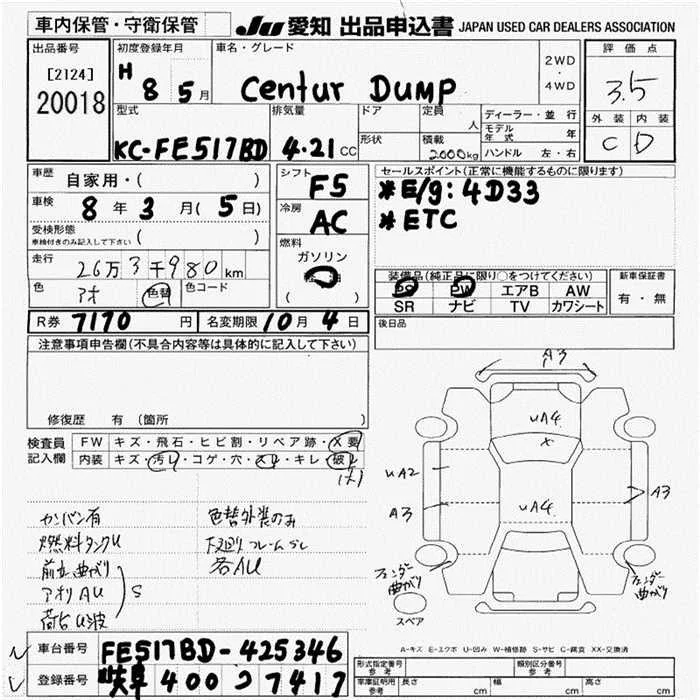 車内保管・守衛保管
JU 愛知 出品申込書 JAPAN USED CAR DEALERS ASSOCIATION
出品番号
[2124]
20018
初度登録年月
H 8 5月
車名・グレード
Centur DUMP
2WD
・
4WD
評価点
3.5
外装 内装
C D
型式
KC-FE517BD
排気量
4.21 CC
ドア
形状
定員
人
積載
2000kg
ディーラー・並行
モデル年式 年
ハンドル 左・右
車歴 自家用・( )
車検 8年3月(5日)
受検形態
車検付きのみ記入して下さい ( )
走行 26万3千980km
色 アオ 色替 色コード
シフト
F5
冷房
AC
燃料
ガソリン
軽油
( )
セールスポイント(正常に機能するものに限ります)
*E/g: 4D33
*ETC
装備品(純正品に限り○をつけてください)
PS PW エアB AW
SR ナビ TV カワシート
新車保証書
有・無
R券 7170 円 名変期限 10月4日
後日品
注意事項申告欄(不具合内容等は具体的に記入して下さい)
修復歴 有(箇所 )
検査員記入欄
FW キズ・飛石・ヒビ割・リペア跡・X要
内装 キズ・汚レ・コゲ・穴・スレ・キレ・破レ
カンバン有
燃料タンクU
前立曲がり
アオリAU
荷台U波
S
色替外装のみ
下廻りフレームサビ
各AU
A3
uA4
x
uA2
A3
uA4
A3
フェンダー曲がり
フェンダー曲がり
スペア
A-キズ E-エクボ U-凹み W-補修跡 S-サビ C-腐食 XX-交換済
車台番号 FE517BD-425346
登録番号 岐阜 400 つ 7417
形式指定番号 参考
類別区分番号 参考
車庫証明用 参考
長さ cm
幅 cm
高さ cm